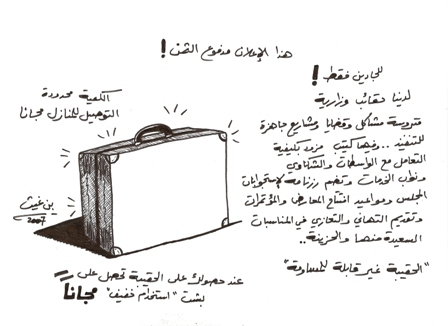 هذا الإعلان مدفوع الثمن !
للجادين فقط !
لدينا حقائب وزارية
متروسة مشاكل وقضايا ومشاريع جاهزة
للتنفيذ .. وفيها كتيب مزود بكيفية
التعامل مع الواسطات والشكاوي
وطلب الخدمات وتضم رزنامة لإستجوابات
المجلس ومواعيد افتتاح المعارض والمؤتمرات
وتقديم التهاني والتعازي في المناسبات
السعيدة منها والحزينة ..
"الحقيبة غير قابلة للمساومة"
الكمية محدودة
التوصيل للمنازل مجاناً
بن غيث
2007
عند حصولك على الحقيبة تحصل على
بشت "استخدام خفيف" مجاناً